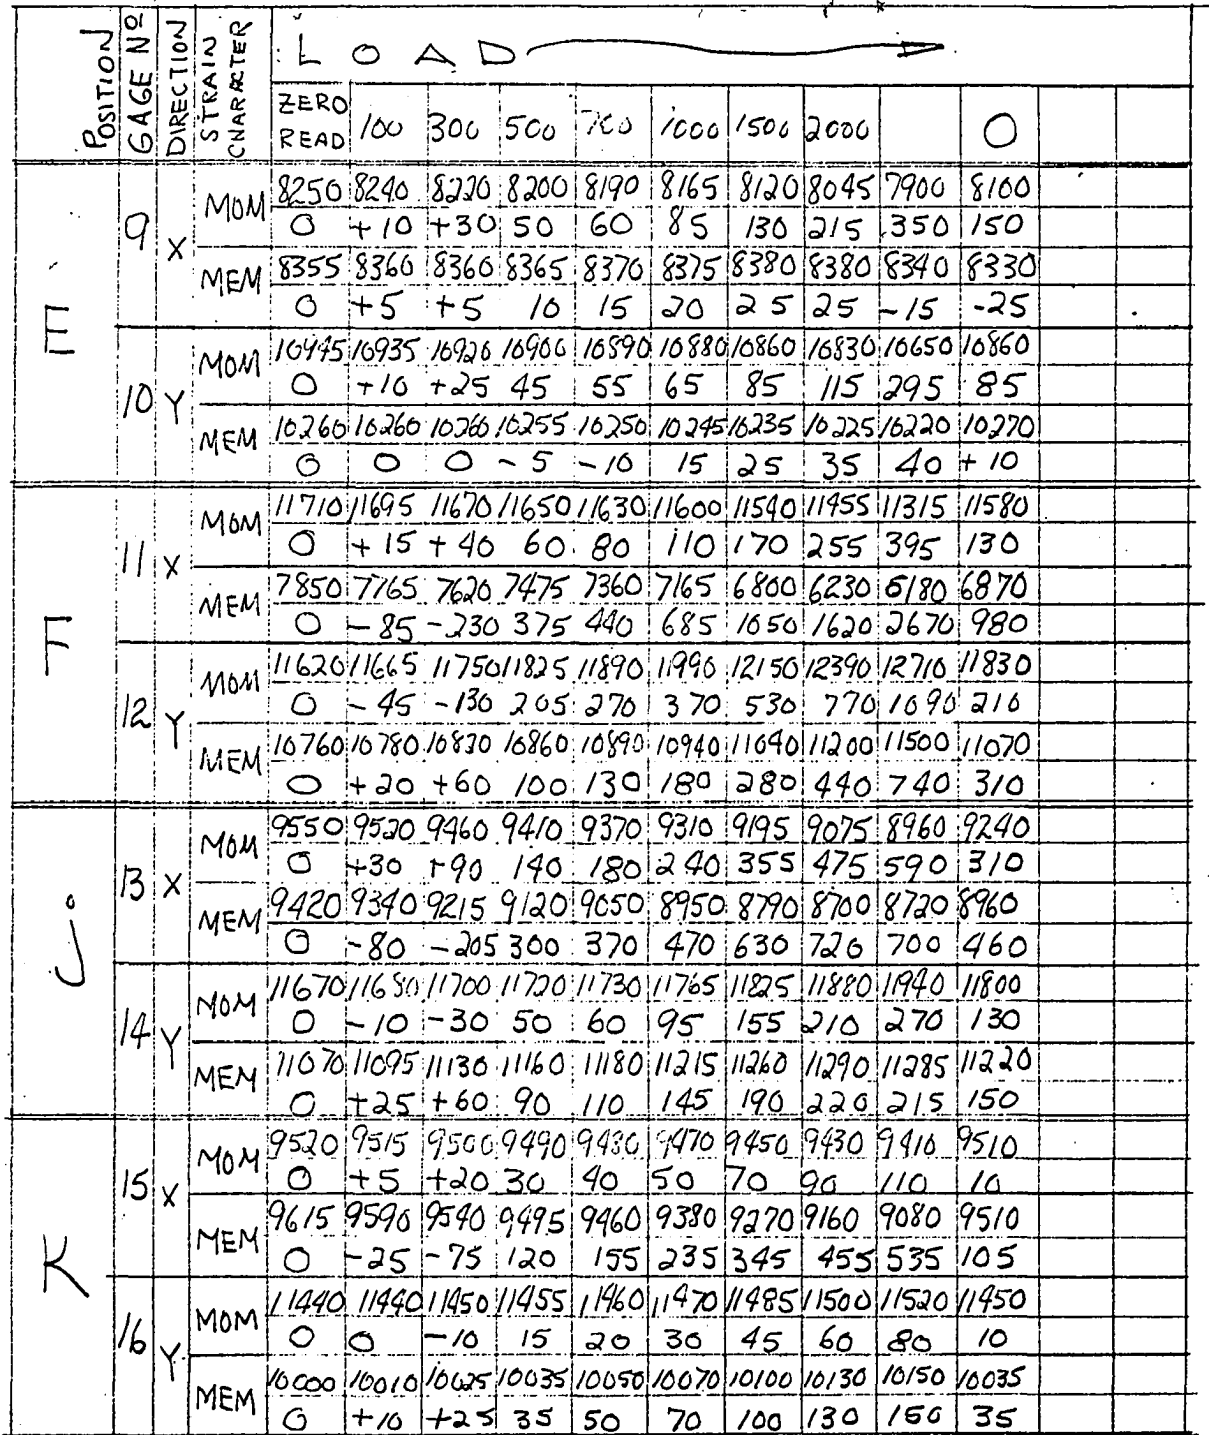 POSITION GAGE Nº DIRECTION STRAIN CHARACTER LOAD
ZERO READ 100 300 500 700 1000 1500 2000 0
E 9 X MOM 8250 8240 8220 8200 8190 8165 8120 8045 7900 8100
0 +10 +30 50 60 85 130 215 350 150
MEM 8355 8360 8360 8365 8370 8375 8380 8380 8340 8330
0 +5 +5 10 15 20 25 25 -15 -25
10 Y MOM 10945 10935 10920 10900 10890 10880 10860 10830 10650 10860
0 +10 +25 45 55 65 85 115 295 85
MEM 10260 10260 10260 10255 10250 10245 10235 10225 10220 10270
0 0 0 -5 -10 15 25 35 40 +10
F 11 X MOM 11710 11695 11670 11650 11630 11600 11540 11455 11315 11580
0 +15 +40 60 80 110 170 255 395 130
MEM 7850 7765 7620 7475 7360 7165 6800 6230 5180 6870
0 -85 -230 375 440 685 1050 1620 2670 980
12 Y MOM 11620 11665 11750 11825 11890 11990 12150 12390 12710 11830
0 -45 -130 205 270 370 530 770 1090 210
MEM 10760 10780 10830 10860 10890 10940 11040 11200 11500 11070
0 +20 +60 100 130 180 280 440 740 310
J 13 X MOM 9550 9520 9460 9410 9370 9310 9195 9075 8960 9240
0 +30 +90 140 180 240 355 475 590 310
MEM 9420 9340 9215 9120 9050 8950 8790 8700 8720 8960
0 -80 -205 300 370 470 630 720 700 460
14 Y MOM 11670 11680 11700 11720 11730 11765 11825 11880 11940 11800
0 -10 -30 50 60 95 155 210 270 130
MEM 11070 11095 11130 11160 11180 11215 11260 11290 11285 11220
0 +25 +60 90 110 145 190 220 215 150
K 15 X MOM 9520 9515 9500 9490 9480 9470 9450 9430 9410 9510
0 +5 +20 30 40 50 70 90 110 10
MEM 9615 9590 9540 9495 9460 9380 9270 9160 9080 9510
0 -25 -75 120 155 235 345 455 535 105
16 Y MOM 11440 11440 11450 11455 11460 11470 11485 11500 11520 11450
0 0 -10 15 20 30 45 60 80 10
MEM 10000 10010 10025 10035 10050 10070 10100 10130 10150 10035
0 +10 +25 35 50 70 100 130 150 35